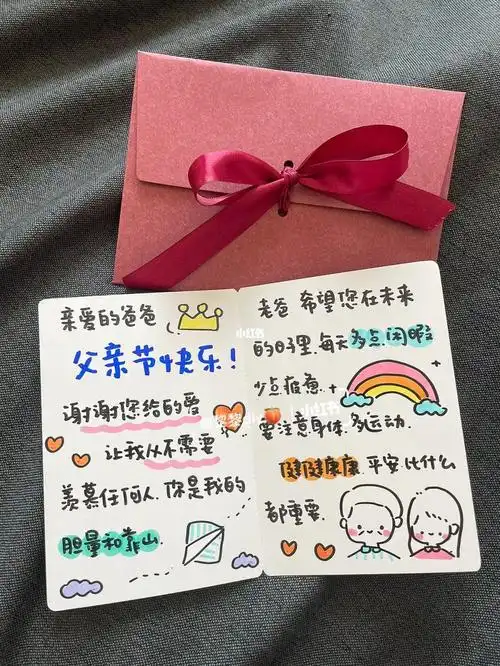 亲爱的爸爸
父亲节快乐！
谢谢您给的爱
让我从不需要
羡慕任何人.你是我的
胆量和靠山.
老爸 希望您在未来
的日子里.每天多点闲暇
少点疲惫.
要注意身体.多运动.
健健康康.平安.比什么
都重要.
小红书
小红书